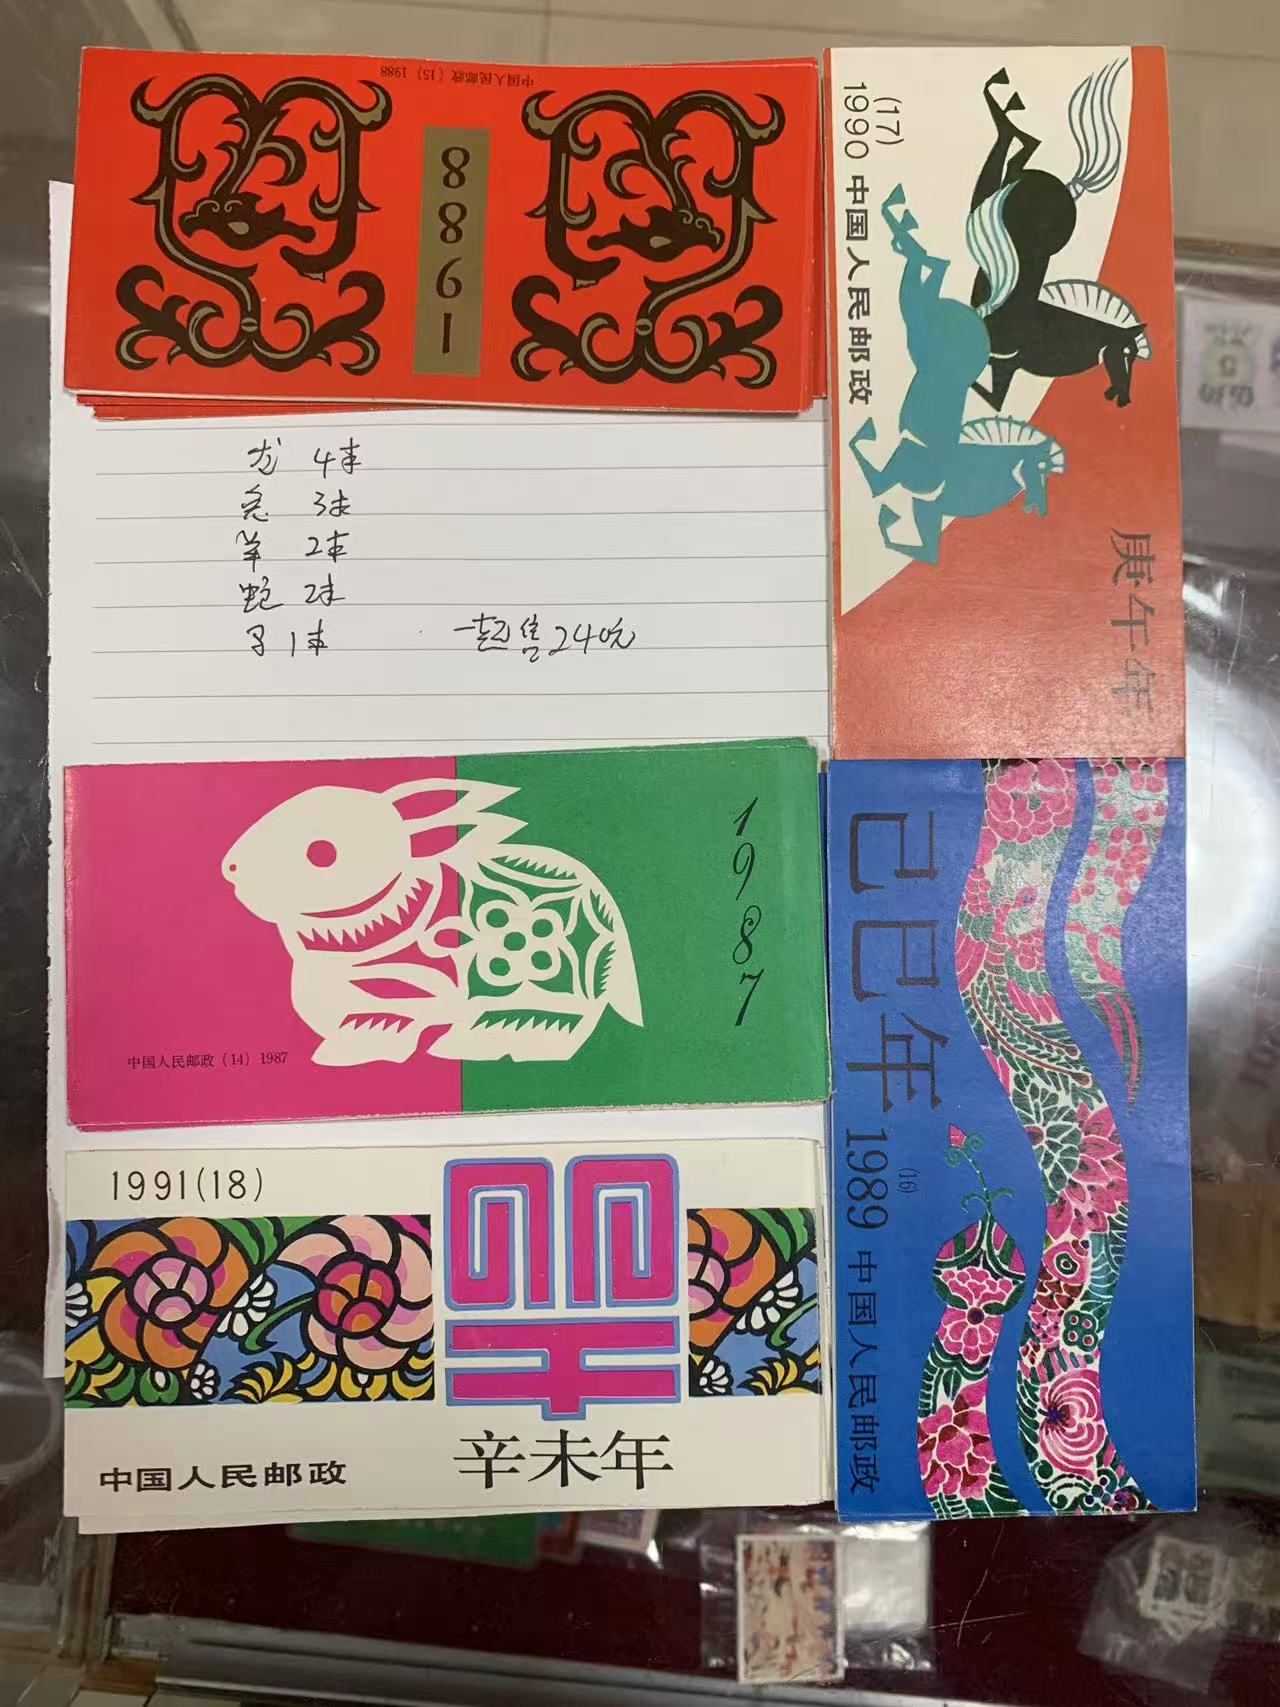 中国人民邮政（15）1988
1988
(17)
1990 中国人民邮政
庚午年
龙 4本
兔 3本
羊 2本
蛇 2本
马 1本 一起售240元
1987
中国人民邮政（14）1987
己巳年 1989 (16) 中国人民邮政
1991(18)
辛未年
中国人民邮政